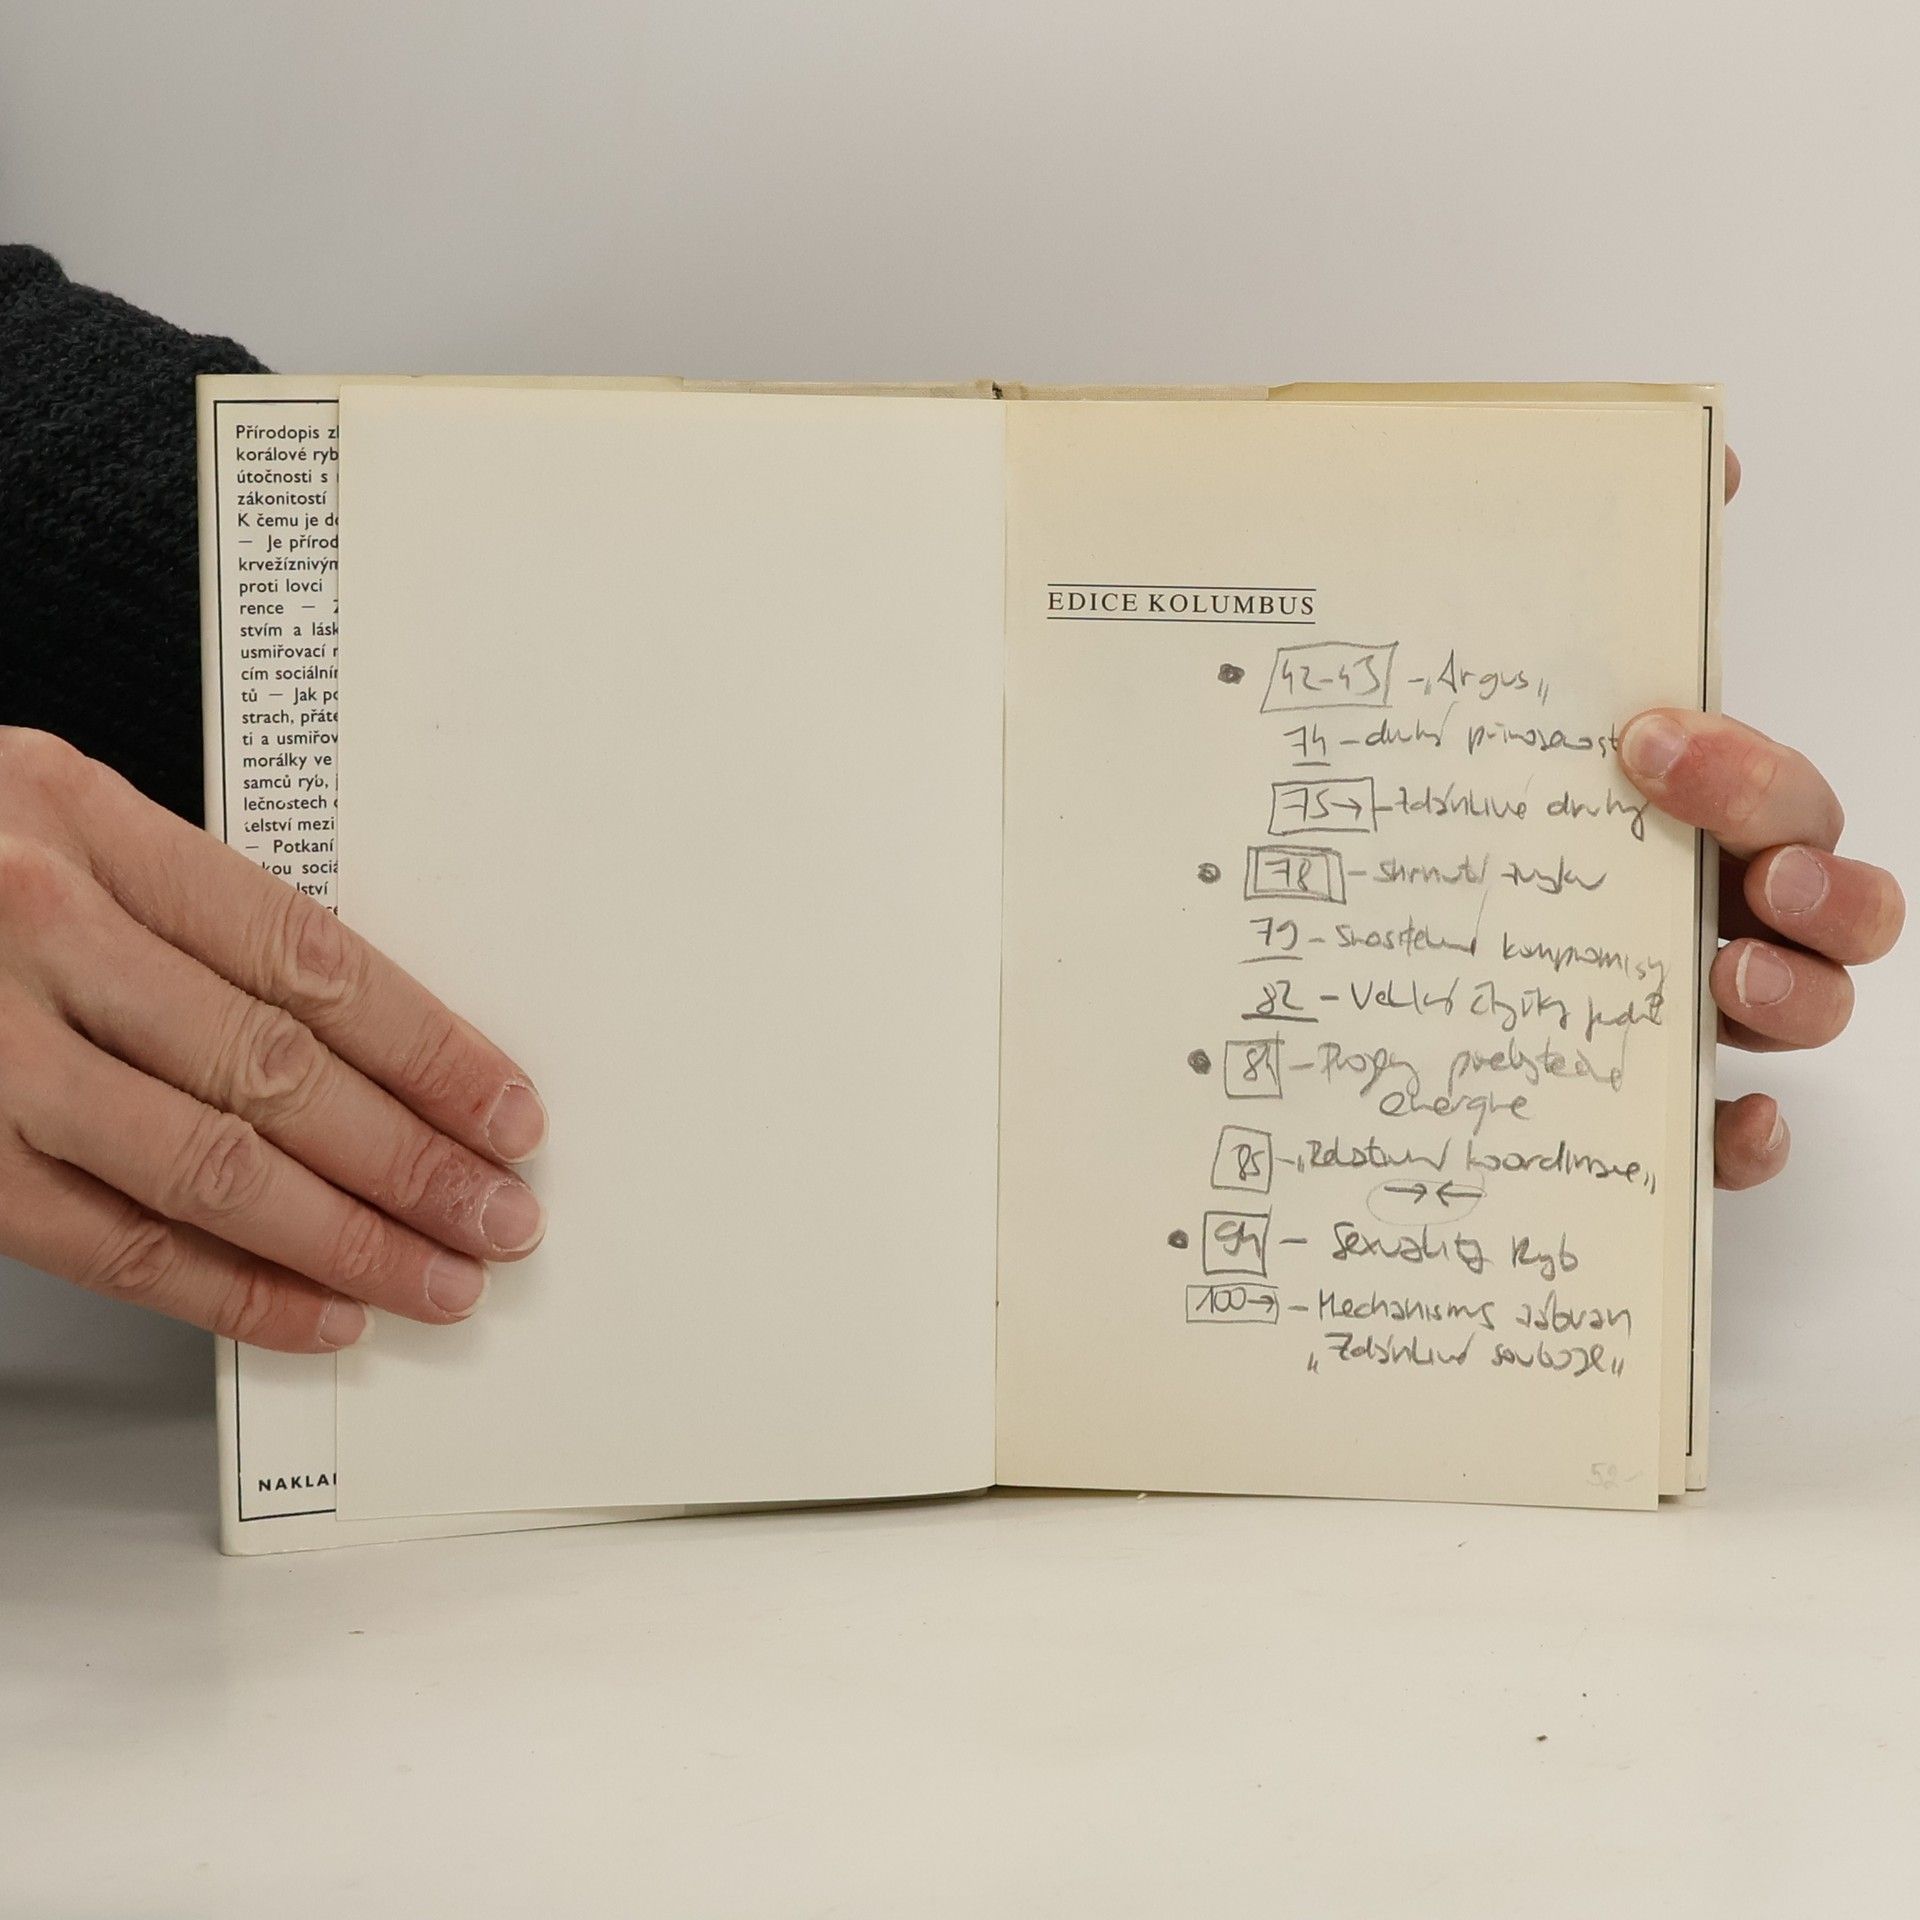 Přírodopis zl
korálové ryb
útočnosti s
zákonitostí
K čemu je do
— Je přírod
krvežíznivým
proti lovci
rence —
stvím a lásk
usmiřovací r
cím sociálním
tů — Jak po
strach, přáte
ti a usmiřov
morálky ve
samců ryb, j
lečnostech
telství mezi
— Potkaní
kou sociá
lství
NAKLA
EDICE KOLUMBUS
42-43 - „Argus„
74 - druhá přirozenost
75→ - Zdánlivé druhy
78 - Shrnutí zvyku
79 - Snositelné kompromisy
82 - Velké čtyřky pudů
84 - Projevy přebytečné
energie
85 - „Relativní koordinace„
→←
94 - Sexuality Ryb
100→ - Mechanismus zábran
„Zdánlivé souboje„
52-